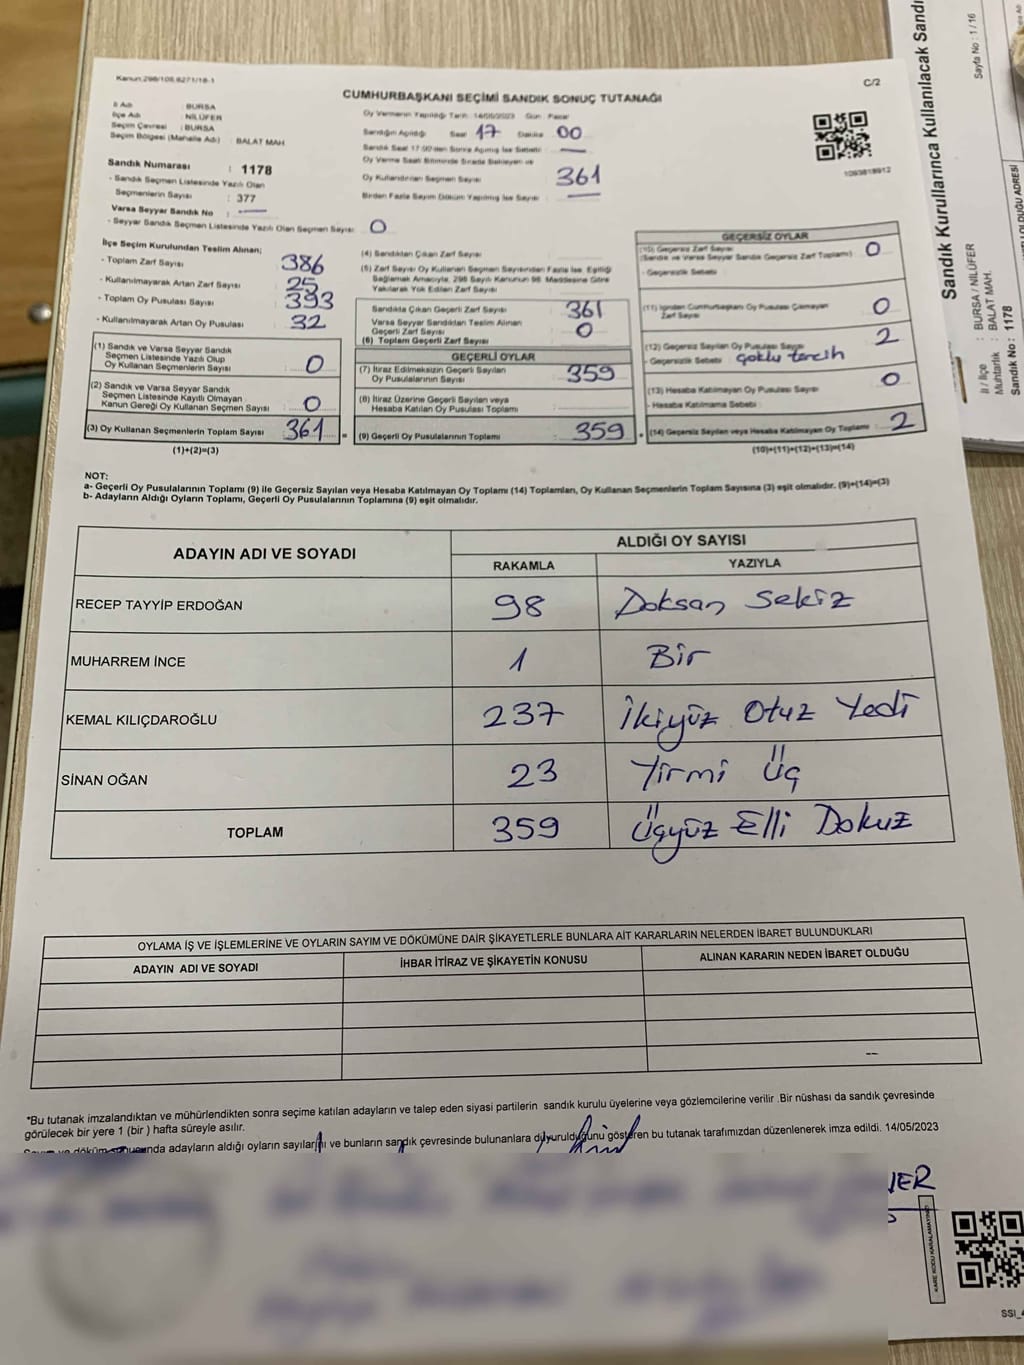 Kanun:298/105,6271/18-1
C/2
CUMHURBAŞKANI SEÇİMİ SANDIK SONUÇ TUTANAĞI
İl Adı : BURSA
İlçe Adı : NİLÜFER
Seçim Çevresi : BURSA
Seçim Bölgesi (Mahalle Adı) : BALAT MAH
Sandık Numarası : 1178
- Sandık Seçmen Listesinde Yazılı Olan
Seçmenlerin Sayısı : 377
Varsa Seyyar Sandık No : —
- Seyyar Sandık Seçmen Listesinde Yazılı Olan Seçmen Sayısı : 0
Oy Vermenin Yapıldığı Tarih :14/05/2023 Gün : Pazar
Sandığın Açıldığı Saat 17 Dakika 00
Sandık Saat 17:00'den Sonra Açılmış İse Sebebi : —
Oy Verme Saati Bitiminde Sırada Bekleyen ve
Oy Kullandırılan Seçmen Sayısı : 361
Birden Fazla Sayım Döküm Yapılmış İse Sayısı : —
1093818912
İlçe Seçim Kurulundan Teslim Alınan;
- Toplam Zarf Sayısı 386
- Kullanılmayarak Artan Zarf Sayısı 25
- Toplam Oy Pusulası Sayısı 393
- Kullanılmayarak Artan Oy Pusulası 32
(1) Sandık ve Varsa Seyyar Sandık
Seçmen Listesinde Yazılı Olup
Oy Kullanan Seçmenlerin Sayısı : 0
(2) Sandık ve Varsa Seyyar Sandık
Seçmen Listesinde Kayıtlı Olmayan
Kanun Gereği Oy Kullanan Seçmen Sayısı : 0
(3) Oy Kullanan Seçmenlerin Toplam Sayısı : 361
(1)+(2)=(3)
(4) Sandıktan Çıkan Zarf Sayısı :
(5) Zarf Sayısı Oy Kullanan Seçmen Sayısından Fazla İse, Eşitliği
Sağlamak Amacıyla, 298 Sayılı Kanunun 98. Maddesine Göre
Yakılarak Yok Edilen Zarf Sayısı :
Sandıkta Çıkan Geçerli Zarf Sayısı : 361
Varsa Seyyar Sandıktan Teslim Alınan
Geçerli Zarf Sayısı : 0
(6) Toplam Geçerli Zarf Sayısı :
GEÇERLİ OYLAR
(7) İtiraz Edilmeksizin Geçerli Sayılan
Oy Pusulalarının Sayısı : 359
(8) İtiraz Üzerine Geçerli Sayılan veya
Hesaba Katılan Oy Pusulası Toplamı :
= (9) Geçerli Oy Pusulalarının Toplamı : 359 +
GEÇERSİZ OYLAR
(10) Geçersiz Zarf Sayısı
(Sandık ve Varsa Seyyar Sandık Geçersiz Zarf Toplamı) : 0
- Geçersizlik Sebebi :
(11) İçinden Cumhurbaşkanı Oy Pusulası Çıkmayan
Zarf Sayısı : 0
(12) Geçersiz Sayılan Oy Pusulası Sayısı : 2
- Geçersizlik Sebebi : çoklu tercih
(13) Hesaba Katılmayan Oy Pusulası Sayısı : 0
- Hesaba Katılmama Sebebi :
(14) Geçersiz Sayılan veya Hesaba Katılmayan Oy Toplamı : 2
(10)+(11)+(12)+(13)=(14)
NOT:
a- Geçerli Oy Pusulalarının Toplamı (9) ile Geçersiz Sayılan veya Hesaba Katılmayan Oy Toplamı (14) Toplamları, Oy Kullanan Seçmenlerin Toplam Sayısına (3) eşit olmalıdır. (9)+(14)=(3)
b- Adayların Aldığı Oyların Toplamı, Geçerli Oy Pusulalarının Toplamına (9) eşit olmalıdır.
ADAYIN ADI VE SOYADI
ALDIĞI OY SAYISI
RAKAMLA YAZIYLA
RECEP TAYYİP ERDOĞAN 98 Doksan Sekiz
MUHARREM İNCE 1 Bir
KEMAL KILIÇDAROĞLU 237 İkiyüz Otuz Yedi
SİNAN OĞAN 23 Yirmi Üç
TOPLAM 359 Üçyüz Elli Dokuz
OYLAMA İŞ VE İŞLEMLERİNE VE OYLARIN SAYIM VE DÖKÜMÜNE DAİR ŞİKAYETLERLE BUNLARA AİT KARARLARIN NELERDEN İBARET BULUNDUKLARI
ADAYIN ADI VE SOYADI İHBAR İTİRAZ VE ŞİKAYETİN KONUSU ALINAN KARARIN NEDEN İBARET OLDUĞU
--
*Bu tutanak imzalandıktan ve mühürlendikten sonra seçime katılan adayların ve talep eden siyasi partilerin sandık kurulu üyelerine veya gözlemcilerine verilir .Bir nüshası da sandık çevresinde
görülecek bir yere 1 (bir ) hafta süreyle asılır.
adayların aldığı oyların sayılarını ve bunların sandık çevresinde bulunanlara duyurulduğunu gösteren bu tutanak tarafımızdan düzenlenerek imza edildi. 14/05/2023
KARE KODU KARALAMAYINIZ!
Sandık Kurullarınca Kullanılacak Sandı
Sayfa No : 1 / 16
İl / İlçe : BURSA / NİLÜFER
Muhtarlık : BALAT MAH.
Sandık No : 1178